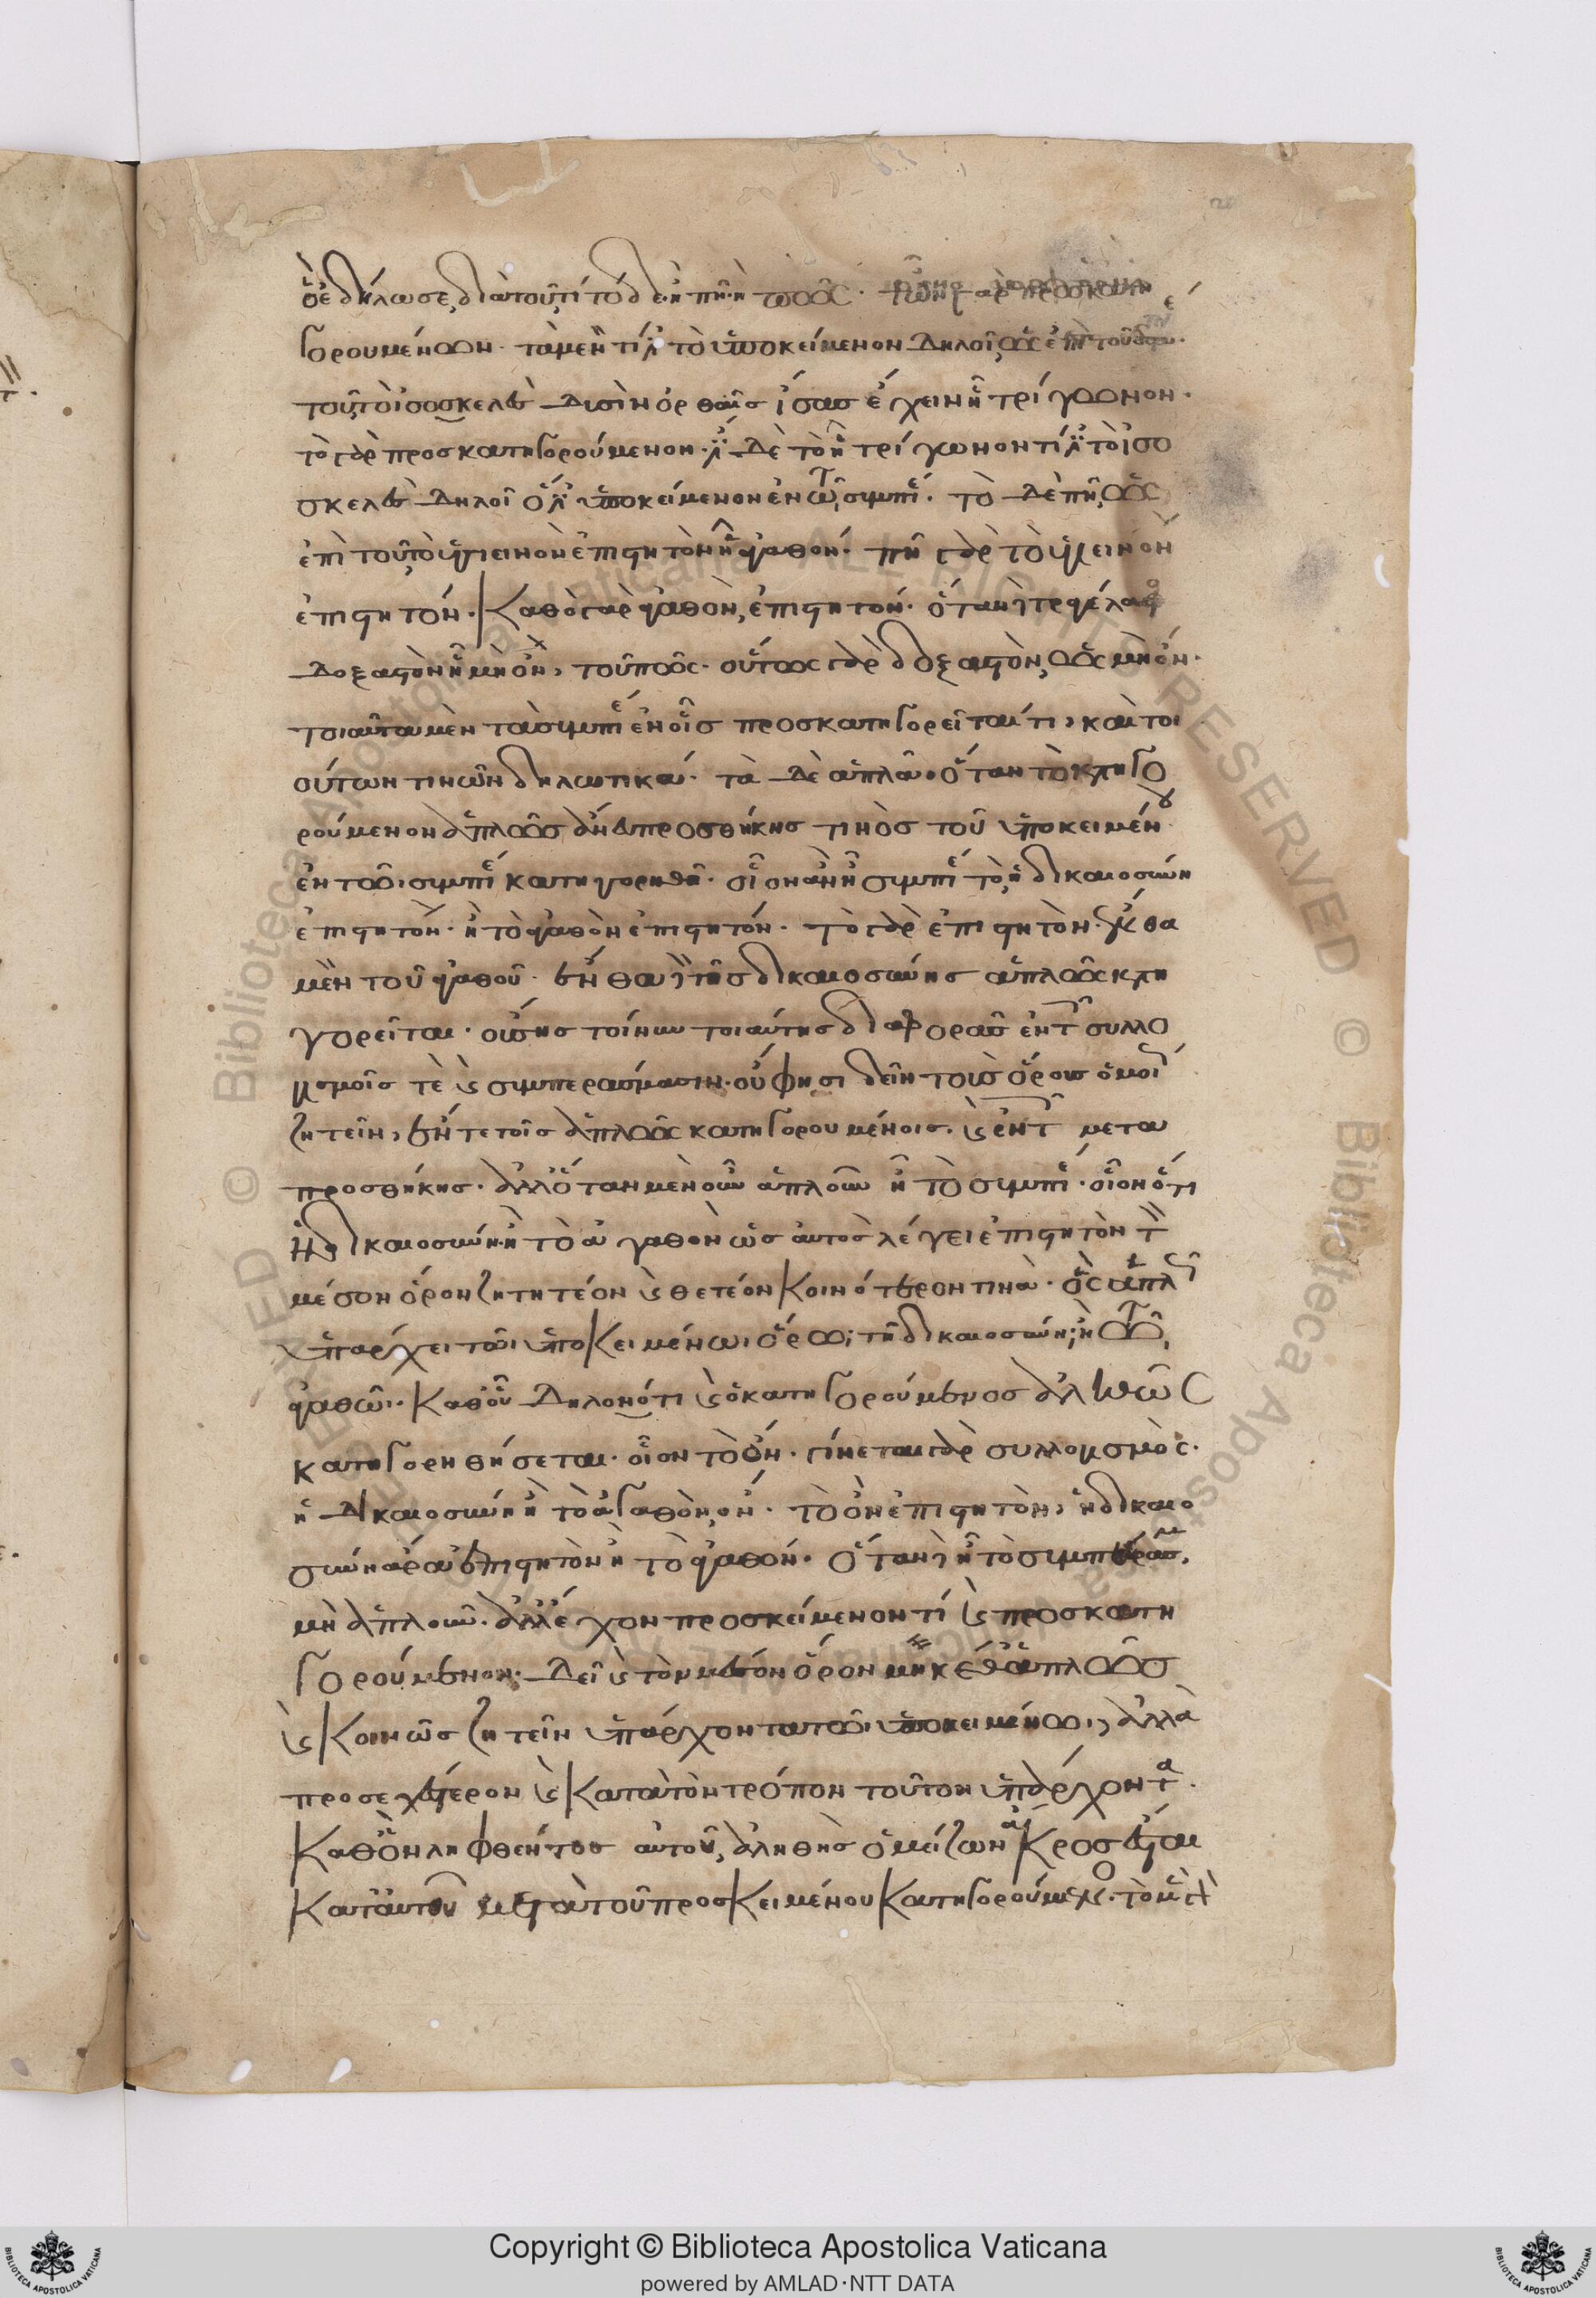 ὃ ἐδήλωσε, διὰ τοῦ, τί τόδε· ἢ πῆ· ἢ πῶς· τῶν γὰρ προσκατη
γορουμένων· τὰ μὲν τί ἐστι τὸ ὑποκείμενον δηλοῖ, ὡς ἐπὶ τοῦ
τοῦ, τὸ ἰσοσκελὲς δυσὶν ὀρθαῖς ἴσας ἔχειν ᾗ τρίγωνον·
τὸ γὰρ προσκατηγορούμενον· ἐστὶ δὲ τὸ ᾗ τρίγωνον τί ἐστι τὸ ἰσο
σκελὲς δηλοῖ ὅ ἐστιν ὑποκείμενον ἐν τῶ συμπεράσματι· τὸ δὲ πῆ, ὡς
ἐπὶ τοῦ, τὸ ὑγιεινὸν ἐπιστητὸν ᾗ ἀγαθόν· πῆ γὰρ τὸ ὑγιεινὸν
ἐπιστητόν· καθὸ γὰρ ἀγαθὸν, ἐπιστητόν· ὅταν δὲ τραγέλαφος
δοξαστὸν ᾗ μὴ ὂν, τοῦ πῶς· οὕτως γὰρ δοξαστὸν, ὡς μὴ ὄν·
τοιαῦτα μὲν τὰ συμπεράσματα ἐν οἷς προσκατηγορεῖται τί, καὶ τοι
ούτων τινῶν δηλωτικά· τὰ δὲ ἁπλᾶ· ὅταν τὸ κατηγο
ρούμενον ἁπλῶς ἄνευ προσθήκης τινὸς τοῦ ὑποκειμένου
ἐν τῶι συμπεράσματι κατηγορηθῆ· οἷον ἂν ᾖ συμπέρασμα τὸ, ἡ δικαιοσύνη
ἐπιστητόν· ἢ τὸ ἀγαθὸν ἐπιστητόν· τὸ γὰρ ἐπιστητὸν· ἐνταῦθα
μὲν τοῦ ἀγαθοῦ· ἐνταῦθα δὲ τῆς δικαιοσύνης ἁπλῶς κατη
γορεῖται· οὔσης τοίνυν τοιαύτης διαφορᾶς ἐν τοῖς συλλο
γισμοῖς τὲ καὶ συμπεράσμασιν· οὔ φησι δεῖν τοὺς ὅρους ὁμοίως
ζητεῖν, ἔν τε τοῖς ἁπλῶς κατηγορουμένοις· καὶ ἐν τοῖς μετὰ
προσθήκης· ἀλλ' ὅταν μὲν οὖν ἁπλοῦν ᾖ τὸ συμπέρασμα· οἷον ὅτι
ἡ δικαιοσύνη· ἢ τὸ ἀγαθὸν ὡς αὐτὸς λέγει ἐπιστητὸν τὸν
μέσον ὅρον ζητητέον καὶ θετέον κοινότερόν τινα· ὃς ἁπλῶς
ὑπάρχει τῶι ὑποκειμένωι ὅρωι· τῆ δικαιοσύνη, ἢ τῶ
ἀγαθῶι· καθ' οὗ δηλονότι καὶ ὁ κατηγορούμενος ἀληθῶς
κατηγορηθήσεται· οἷον τὸ ὄν· γίνεται γὰρ συλλογισμὸς·
ἡ δικαιοσύνη ἢ τὸ ἀγαθὸν, ὄν· τὸ ὂν ἐπιστητὸν, ἡ δικαιο
σύνη ἄρα ἐπιστητὸν ἢ τὸ ἀγαθόν· ὅταν δὲ ᾖ τὸ συμπέρασμα,
μὴ ἁπλοῦν· ἀλλ' ἔχον προσκείμενον τί καὶ προσκατη
γορούμενον· δεῖ καὶ τὸν μέσον ὅρον μηκέθ' ἁπλῶς
καὶ κοινῶς ζητεῖν ὑπάρχοντα τῶι ὑποκειμένωι, ἀλλὰ
προσεχέστερον καὶ κατὰ τὸν τρόπον τοῦτον ὑπάρχοντα·
καθ' ὃν ληφθέντος αὐτοῦ, ἀληθὴς ὁ μείζων ἄκρος ἔσται
κατ' αὐτοῦ μετὰ τοῦ προσκειμένου κατηγορούμενος·